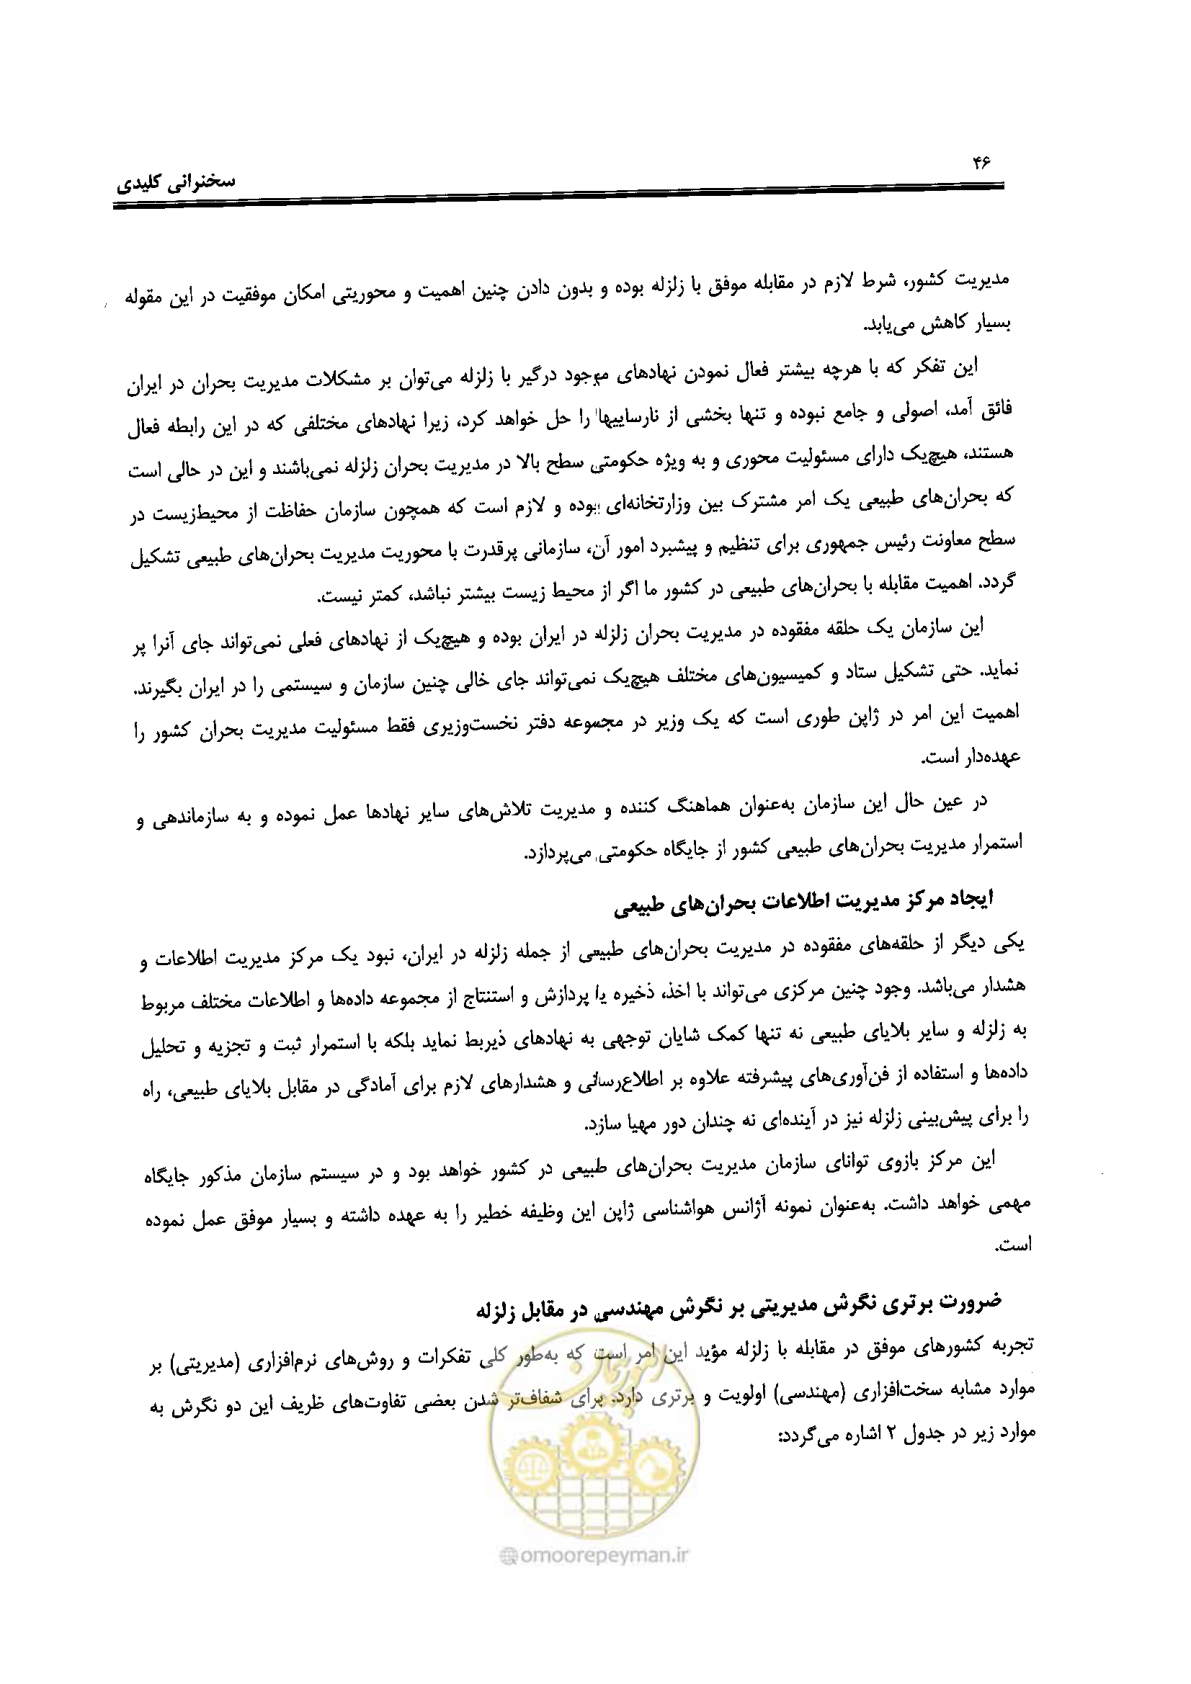 ۴۶
سخنرانی کلیدی
مدیریت کشور، شرط لازم در مقابله موفق با زلزله بوده و بدون دادن چنین اهمیت و محوریتی امکان موفقیت در این مقوله
بسیار کاهش می‌یابد.
این تفکر که با هرچه بیشتر فعال نمودن نهادهای موجود درگیر با زلزله می‌توان بر مشکلات مدیریت بحران در ایران
فائق آمد، اصولی و جامع نبوده و تنها بخشی از نارساییها را حل خواهد کرد، زیرا نهادهای مختلفی که در این رابطه فعال
هستند، هیچ‌یک دارای مسئولیت محوری و به ویژه حکومتی سطح بالا در مدیریت بحران زلزله نمی‌باشند و این در حالی است
که بحران‌های طبیعی یک امر مشترک بین وزارتخانه‌ای بوده و لازم است که همچون سازمان حفاظت از محیط‌زیست در
سطح معاونت رئیس جمهوری برای تنظیم و پیشبرد امور آن، سازمانی پرقدرت با محوریت مدیریت بحران‌های طبیعی تشکیل
گردد. اهمیت مقابله با بحران‌های طبیعی در کشور ما اگر از محیط زیست بیشتر نباشد، کمتر نیست.
این سازمان یک حلقه مفقوده در مدیریت بحران زلزله در ایران بوده و هیچ‌یک از نهادهای فعلی نمی‌تواند جای آنرا پر
نماید. حتی تشکیل ستاد و کمیسیون‌های مختلف هیچ‌یک نمی‌تواند جای خالی چنین سازمان و سیستمی را در ایران بگیرند.
اهمیت این امر در ژاپن طوری است که یک وزیر در مجموعه دفتر نخست‌وزیری فقط مسئولیت مدیریت بحران کشور را
عهده‌دار است.
در عین حال این سازمان به‌عنوان هماهنگ کننده و مدیریت تلاش‌های سایر نهادها عمل نموده و به سازماندهی و
استمرار مدیریت بحران‌های طبیعی کشور از جایگاه حکومتی می‌پردازد.
ایجاد مرکز مدیریت اطلاعات بحران‌های طبیعی
یکی دیگر از حلقه‌های مفقوده در مدیریت بحران‌های طبیعی از جمله زلزله در ایران، نبود یک مرکز مدیریت اطلاعات و
هشدار می‌باشد. وجود چنین مرکزی می‌تواند با اخذ، ذخیره یا پردازش و استنتاج از مجموعه داده‌ها و اطلاعات مختلف مربوط
به زلزله و سایر بلایای طبیعی نه تنها کمک شایان توجهی به نهادهای ذیربط نماید بلکه با استمرار ثبت و تجزیه و تحلیل
داده‌ها و استفاده از فن‌آوری‌های پیشرفته علاوه بر اطلاع‌رسانی و هشدارهای لازم برای آمادگی در مقابل بلایای طبیعی، راه
را برای پیش‌بینی زلزله نیز در آینده‌ای نه چندان دور مهیا سازد.
این مرکز بازوی توانای سازمان مدیریت بحران‌های طبیعی در کشور خواهد بود و در سیستم سازمان مذکور جایگاه
مهمی خواهد داشت. به‌عنوان نمونه آژانس هواشناسی ژاپن این وظیفه خطیر را به عهده داشته و بسیار موفق عمل نموده
است.
ضرورت برتری نگرش مدیریتی بر نگرش مهندسی در مقابل زلزله
تجربه کشورهای موفق در مقابله با زلزله مؤید این امر است که به‌طور کلی تفکرات و روش‌های نرم‌افزاری (مدیریتی) بر
موارد مشابه سخت‌افزاری (مهندسی) اولویت و برتری دارد. برای شفاف‌تر شدن بعضی تفاوت‌های ظریف این دو نگرش به
موارد زیر در جدول ۲ اشاره می‌گردد:
omoorepeyman.ir